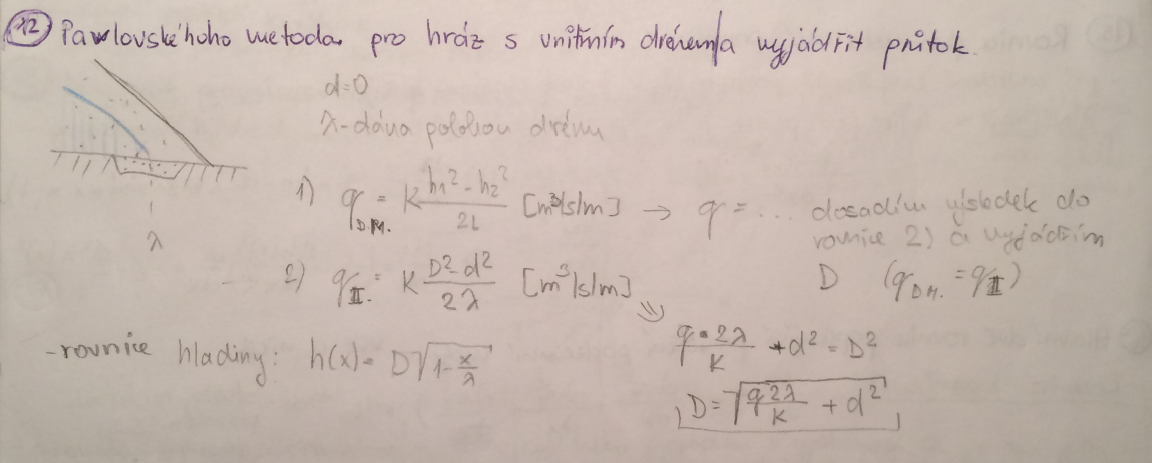 12 Pawlovského metoda pro hráz s vnitřním drénem/a vyjádřit průtok.
d=0
λ-dána polohou drénu
1) q_{D.M.} = K \frac{h_1^2 - h_2^2}{2L} [m³/s/m] → q = ... dosadím výsledek do
rovnice 2) a vyjádřím
D (q_{DM.} = q_{II})
λ
2) q_{II.} = K \frac{D^2-d^2}{2λ} [m³/s/m] ⇒
\frac{q \cdot 2λ}{K} + d² = D²
-rovnice hladiny: h(x) = D\sqrt{1-\frac{x}{λ}}
D = \sqrt{\frac{q2λ}{K} + d^2}